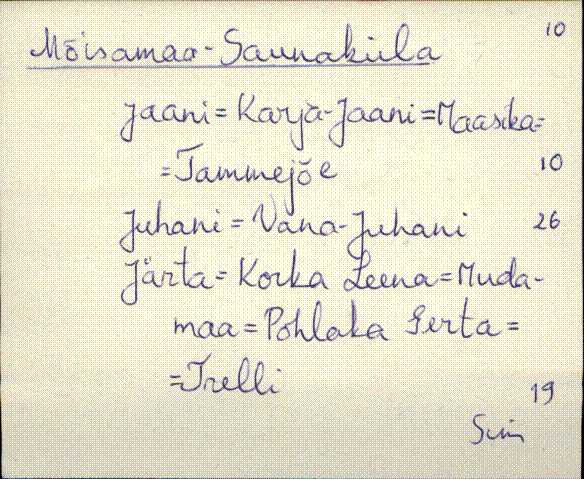 10
Mõisamaa-Saunaküla
Jaani = Karja-Jaani = Maasika =
= Tammejõe 10
Juhani = Vana-Juhani 26
Järta = Korka Leena = Muda-
maa = Pohlaka Gerta =
= Trelli 19